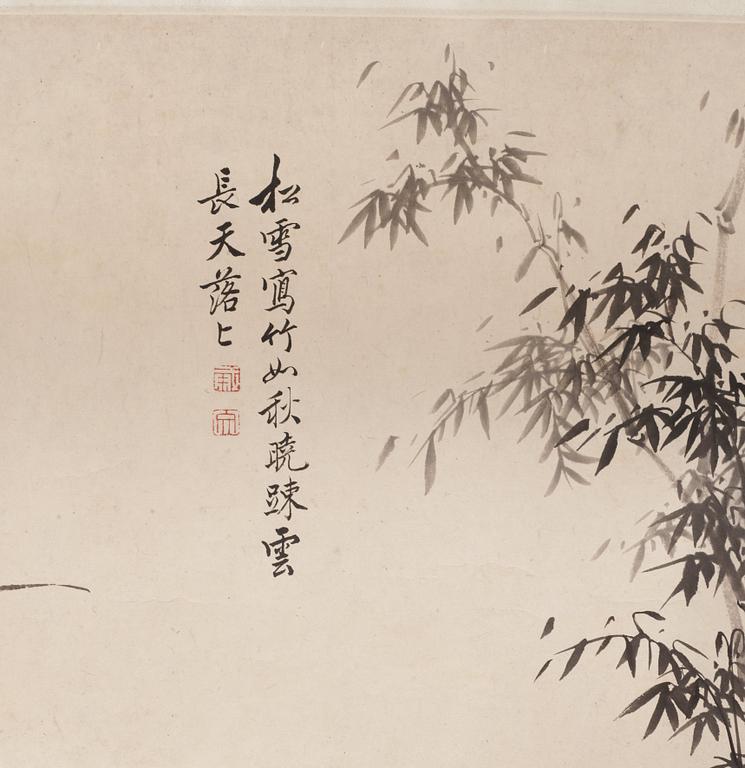 松雪寫竹如秋曉踈雲
長天落上